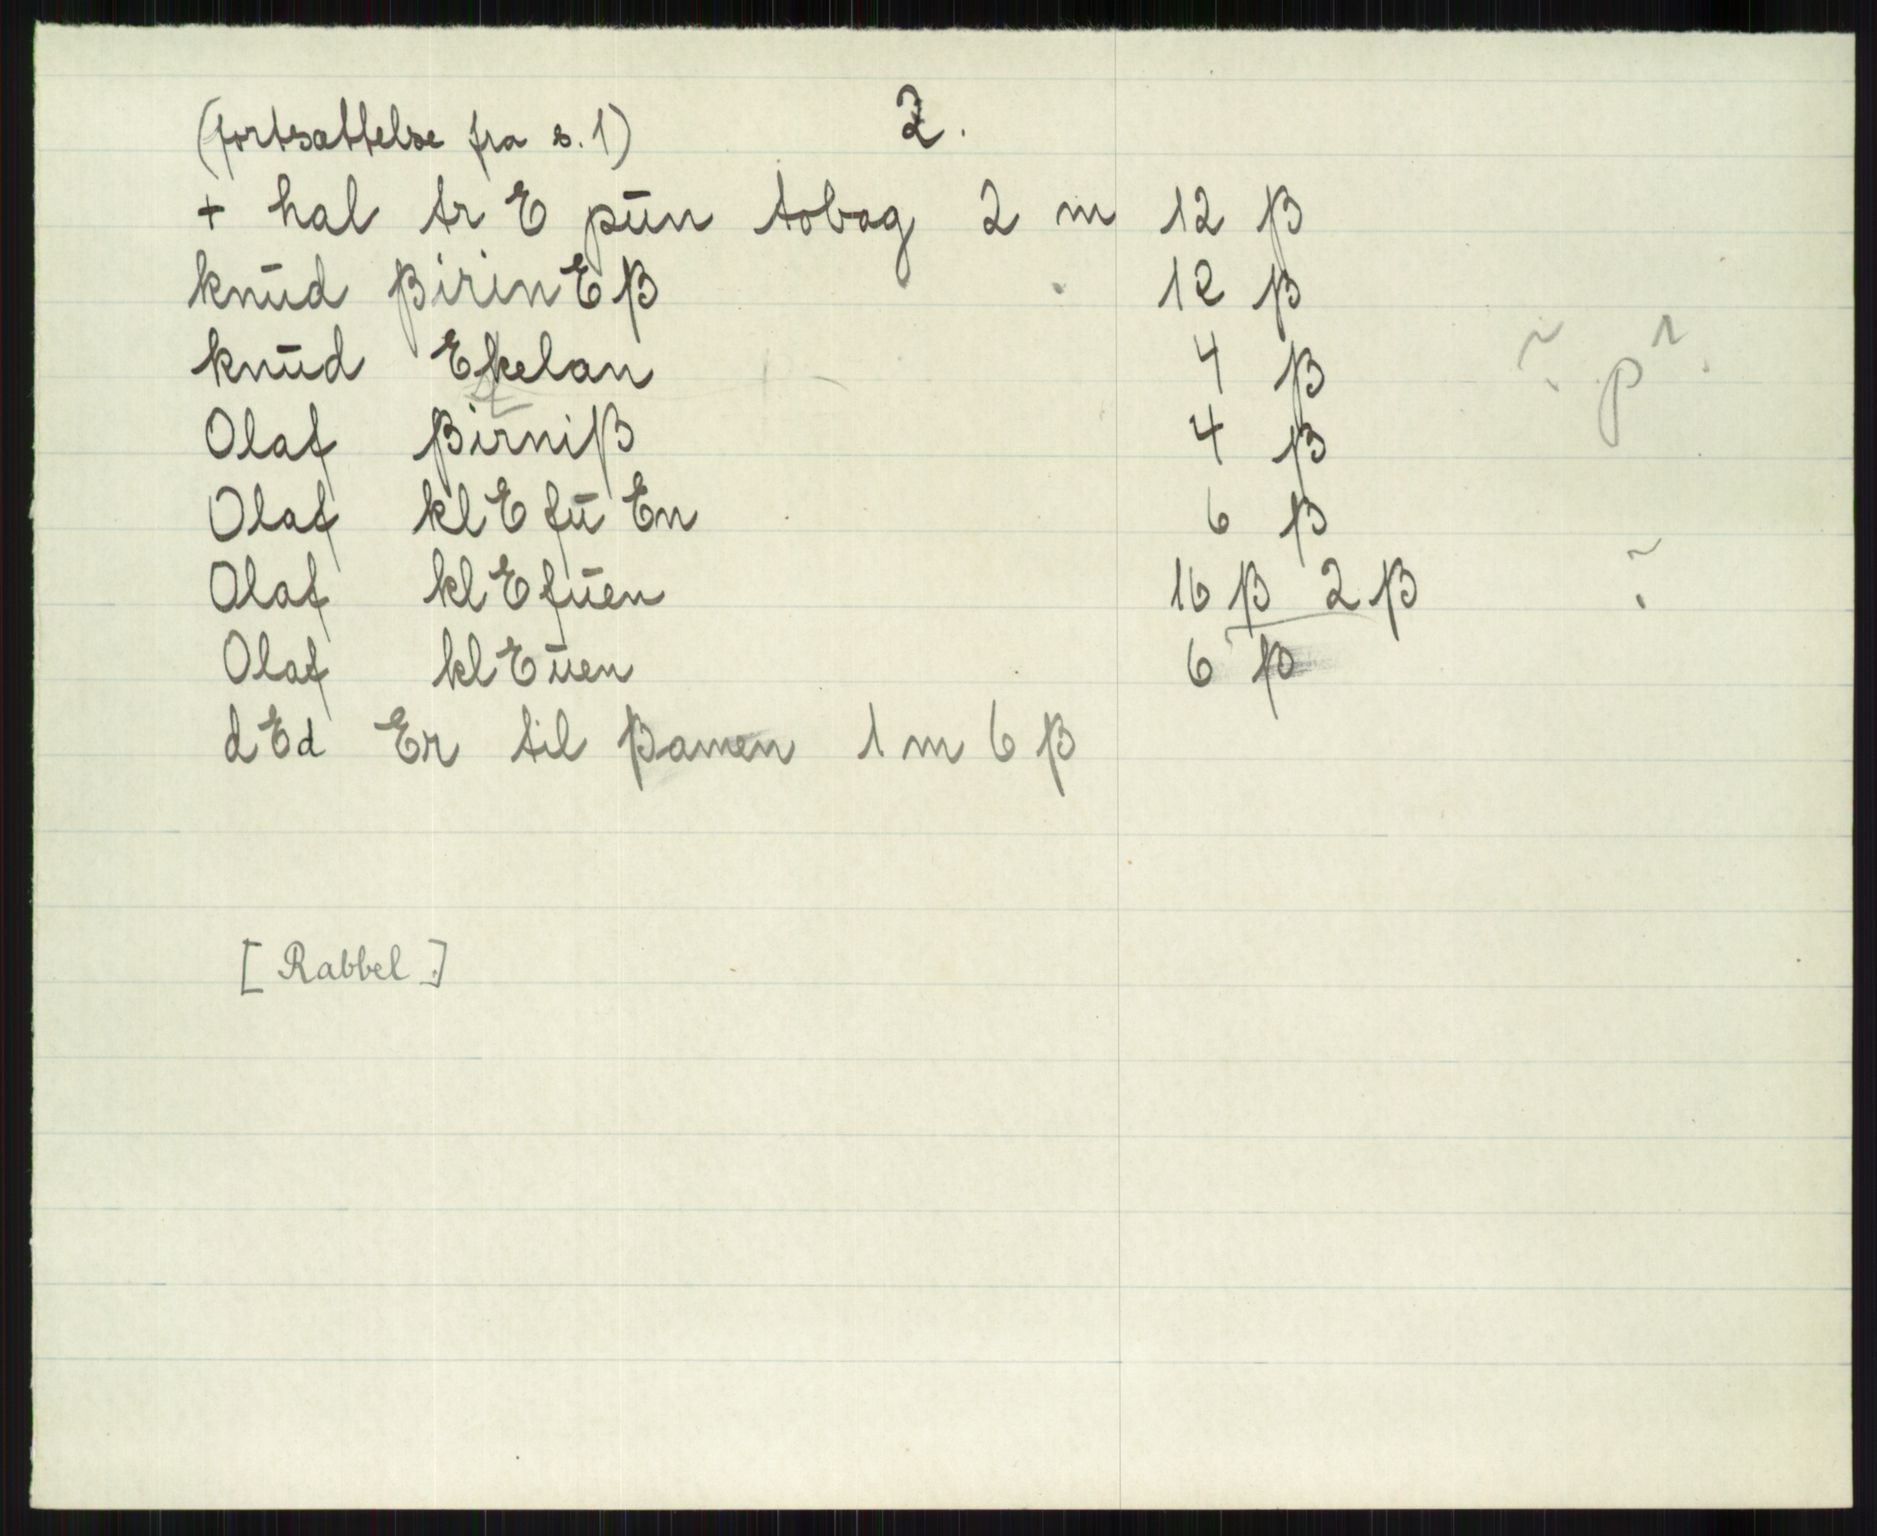 (fortsættelse fra s. 1) 2.
+ hal tr E pūn tobag 2 m 12 ß
knūd ßirin E ß 12 ß
knūd Ekelan 4 ß
Olaf ßirniß 4 ß
Olaf kl E fū En 6 ß
Olaf kl E fūen 16 ß 2 ß
Olaf kl E ūen 6 ß
d E d Er til ßamen 1 m 6 ß
[Rabbel]